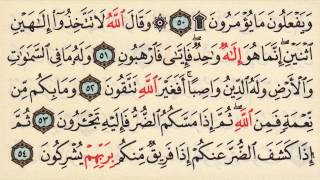 وَيَفْعَلُونَ مَا يُؤْمَرُونَ ۩ ٥٠ ۞ وَقَالَ ٱللَّهُ لَا تَتَّخِذُوٓا۟ إِلَـٰهَيْنِ
ٱثْنَيْنِ ۖ إِنَّمَا هُوَ إِلَـٰهٌ وَٰحِدٌ ۖ فَإِيَّـٰىَ فَٱرْهَبُونِ ٥١ وَلَهُۥ مَا فِى ٱلسَّمَـٰوَٰتِ
وَٱلْأَرْضِ وَلَهُ ٱلدِّينُ وَاصِبًا ۚ أَفَغَيْرَ ٱللَّهِ تَتَّقُونَ ٥٢ وَمَا بِكُم مِّن
نِّعْمَةٍ فَمِنَ ٱللَّهِ ۖ ثُمَّ إِذَا مَسَّكُمُ ٱلضُّرُّ فَإِلَيْهِ تَجْـَٔرُونَ ٥٣ ثُمَّ
إِذَا كَشَفَ ٱلضُّرَّ عَنكُمْ إِذَا فَرِيقٌ مِّنكُم بِرَبِّهِمْ يُشْرِكُونَ ٥٤